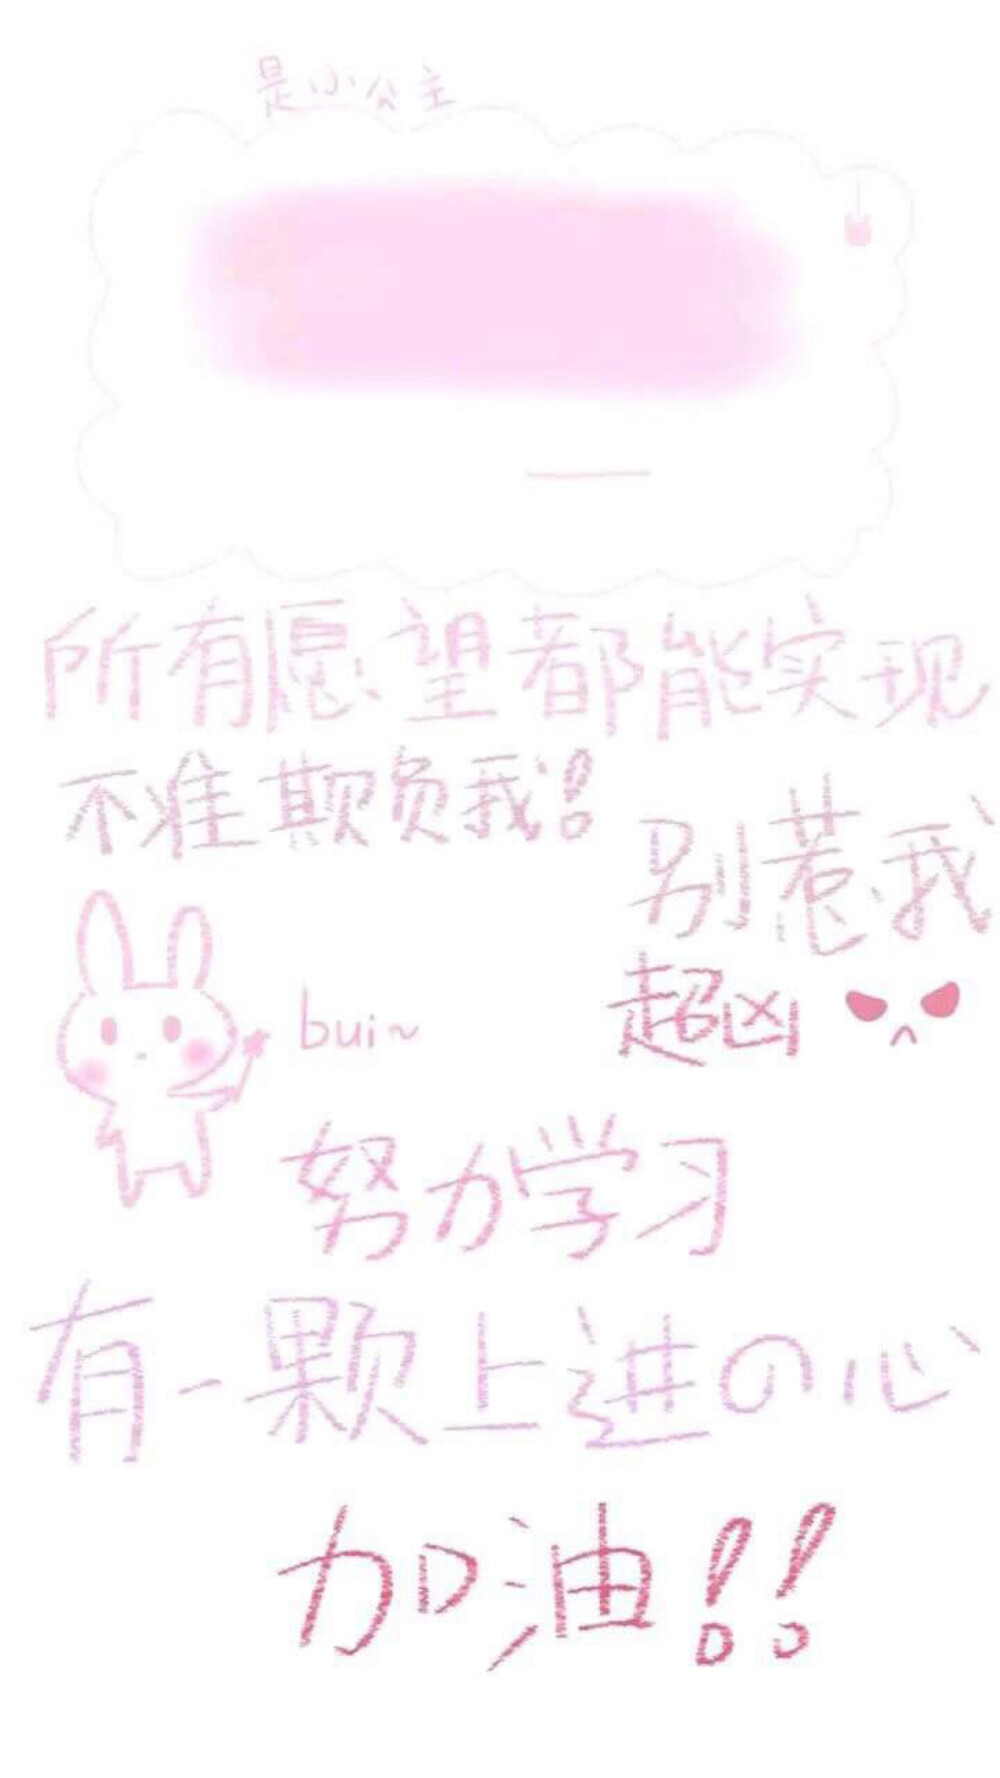 是小公主
所有愿望都能实现
不准欺负我!
别惹我
超凶
bui~
努力学习
有一颗上进の心
加油!!